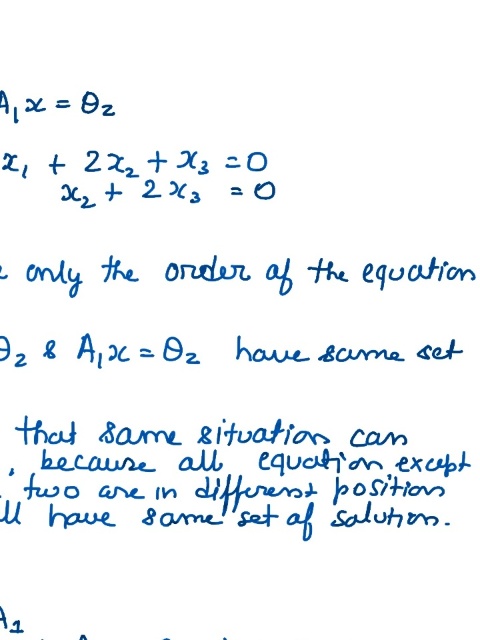 A₁x = θ₂
x₁ + 2x₂ + x₃ = 0
x₂ + 2x₃ = 0
only the order of the equation
θ₂ & A₁x = θ₂ have same set
that same situation can
, because all equation except
two are in different position
ll have same set of solution.
A₁